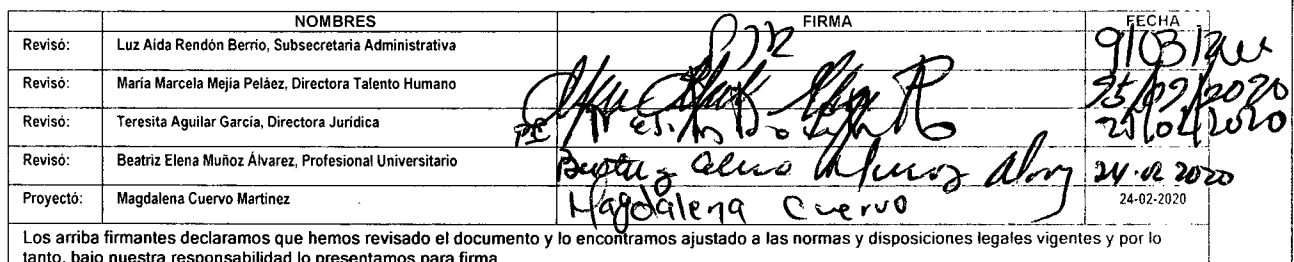 NOMBRES FIRMA FECHA
Revisó: Luz Aida Rendón Berrio, Subsecretaria Administrativa 9/03/
Revisó: María Marcela Mejía Peláez, Directora Talento Humano 25/02/2020
Revisó: Teresita Aguilar García, Directora Jurídica 25/02/2020
Revisó: Beatriz Elena Muñoz Álvarez, Profesional Universitario Beatriz Elena Muñoz 24.02.2020
Proyectó: Magdalena Cuervo Martínez Magdalena Cuervo 24-02-2020
Los arriba firmantes declaramos que hemos revisado el documento y lo encontramos ajustado a las normas y disposiciones legales vigentes y por lo
tanto, bajo nuestra responsabilidad lo presentamos para firma